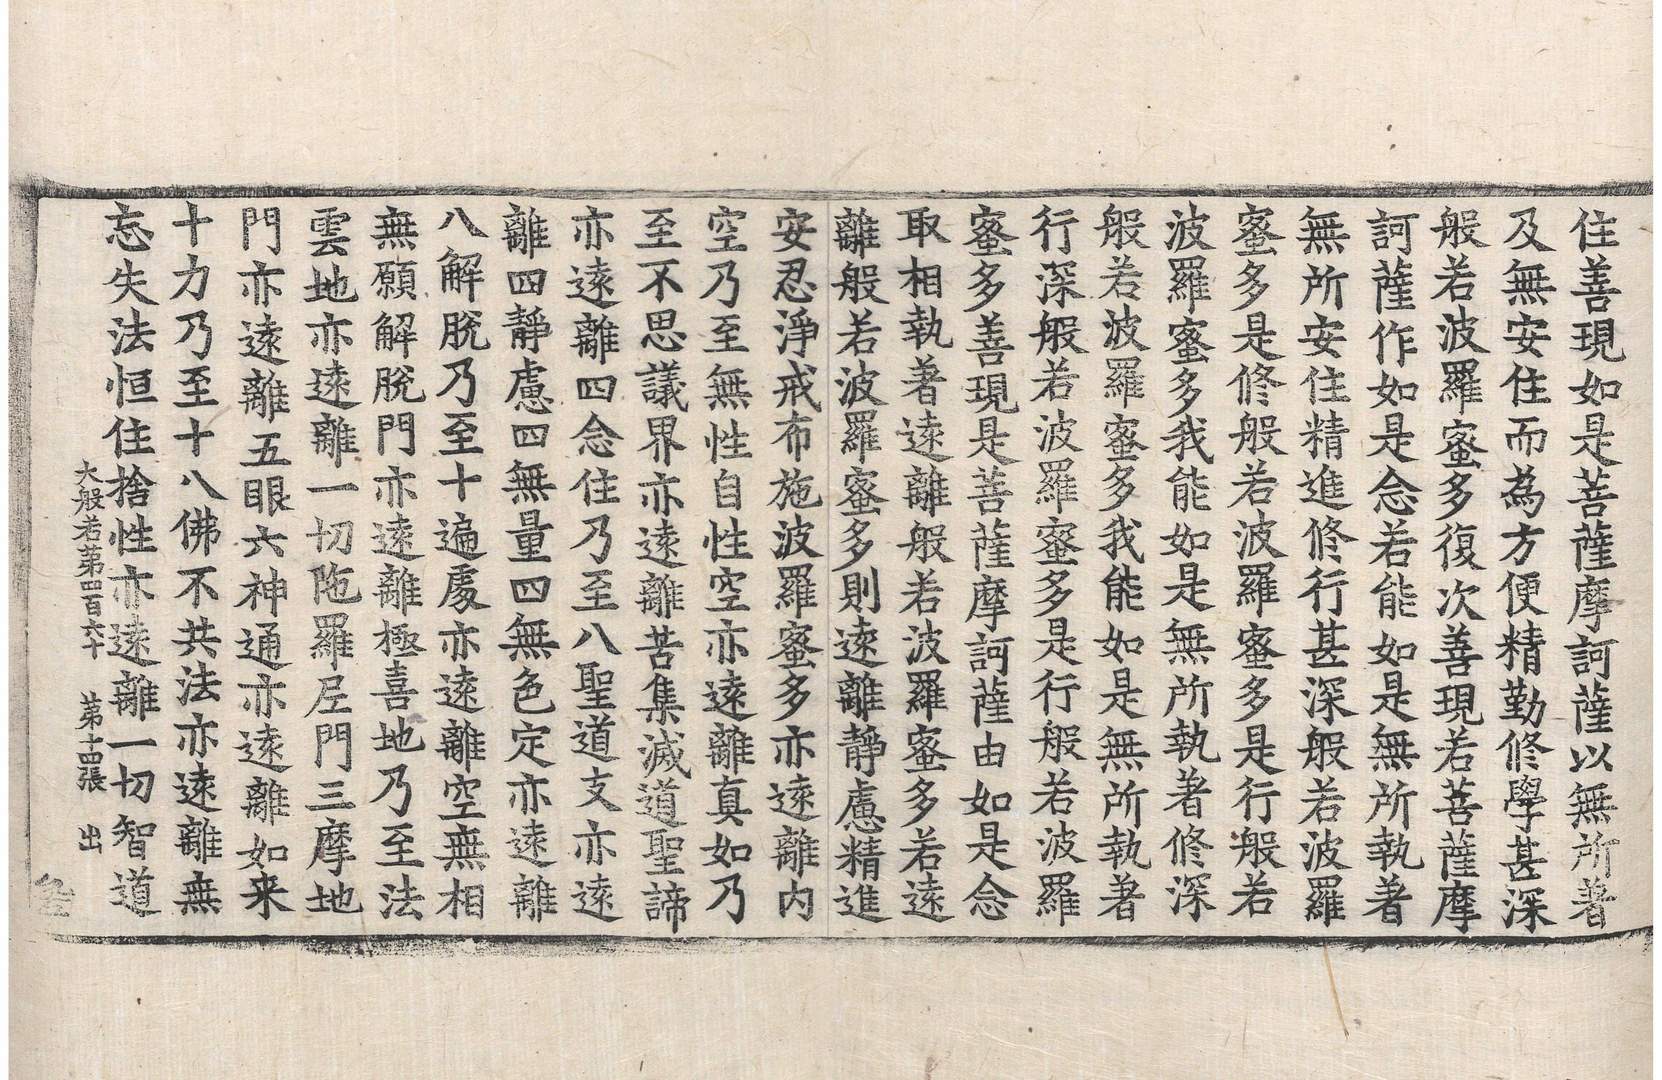 住善現如是菩薩摩訶薩以無所著
及無安住而為方便精勤修學甚深
般若波羅蜜多復次善現若菩薩摩
訶薩作如是念若能如是無所執著
無所安住精進修行甚深般若波羅
蜜多是修般若波羅蜜多是行般若
波羅蜜多我能如是無所執著修深
般若波羅蜜多我能如是無所執著
行深般若波羅蜜多是行般若波羅
蜜多善現是菩薩摩訶薩由如是念
取相執著遠離般若波羅蜜多若遠
離般若波羅蜜多則遠離靜慮精進
安忍淨戒布施波羅蜜多亦遠離內
空乃至無性自性空亦遠離真如乃
至不思議界亦遠離苦集滅道聖諦
亦遠離四念住乃至八聖道支亦遠
離四靜慮四無量四無色定亦遠離
八解脫乃至十遍處亦遠離空無相
無願解脫門亦遠離極喜地乃至法
雲地亦遠離一切陁羅尼門三摩地
門亦遠離五眼六神通亦遠離如来
十力乃至十八佛不共法亦遠離無
忘失法恒住捨性亦遠離一切智道
大般若第四百六十 第十四張 出